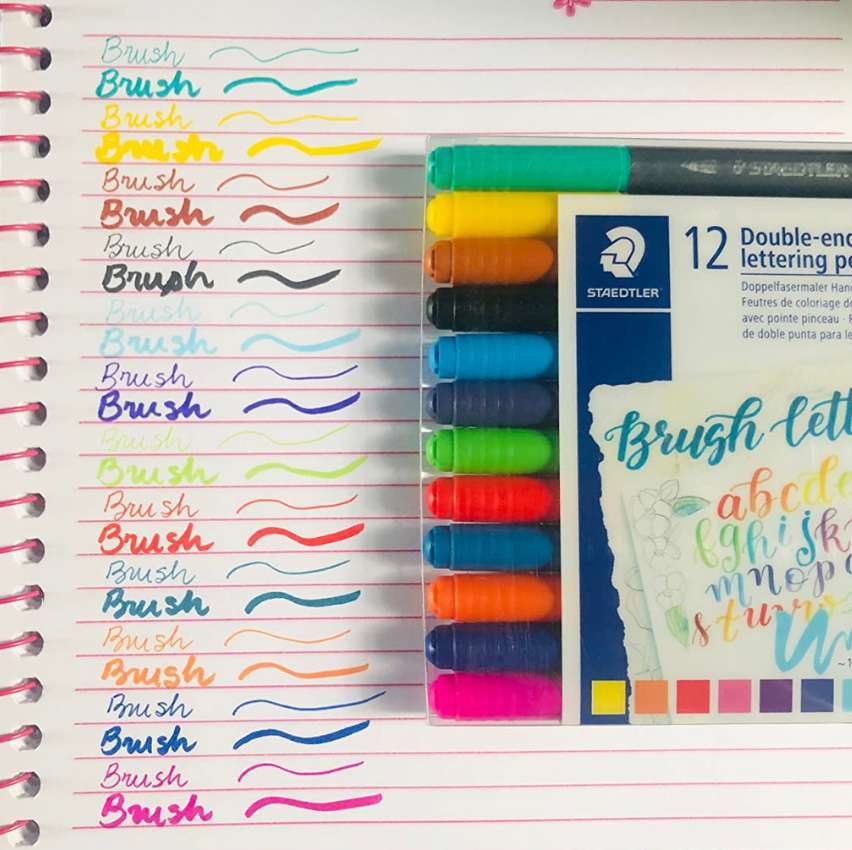 Brush
Brush
Brush
Brush
Brush
Brush
Brush
Brush
Brush
Brush
Brush
Brush
Brush
Brush
Brush
Brush
Brush
Brush
Brush
Brush
Brush
Brush
Brush
Brush
STAEDTLER
STAEDTLER
12 Double-en
lettering pe
Doppelfasermaler Han
Feutres de coloriage d
avec pointe pinceau ·
de doble punta para le
Brush lett
abcde
fghijk
mnop